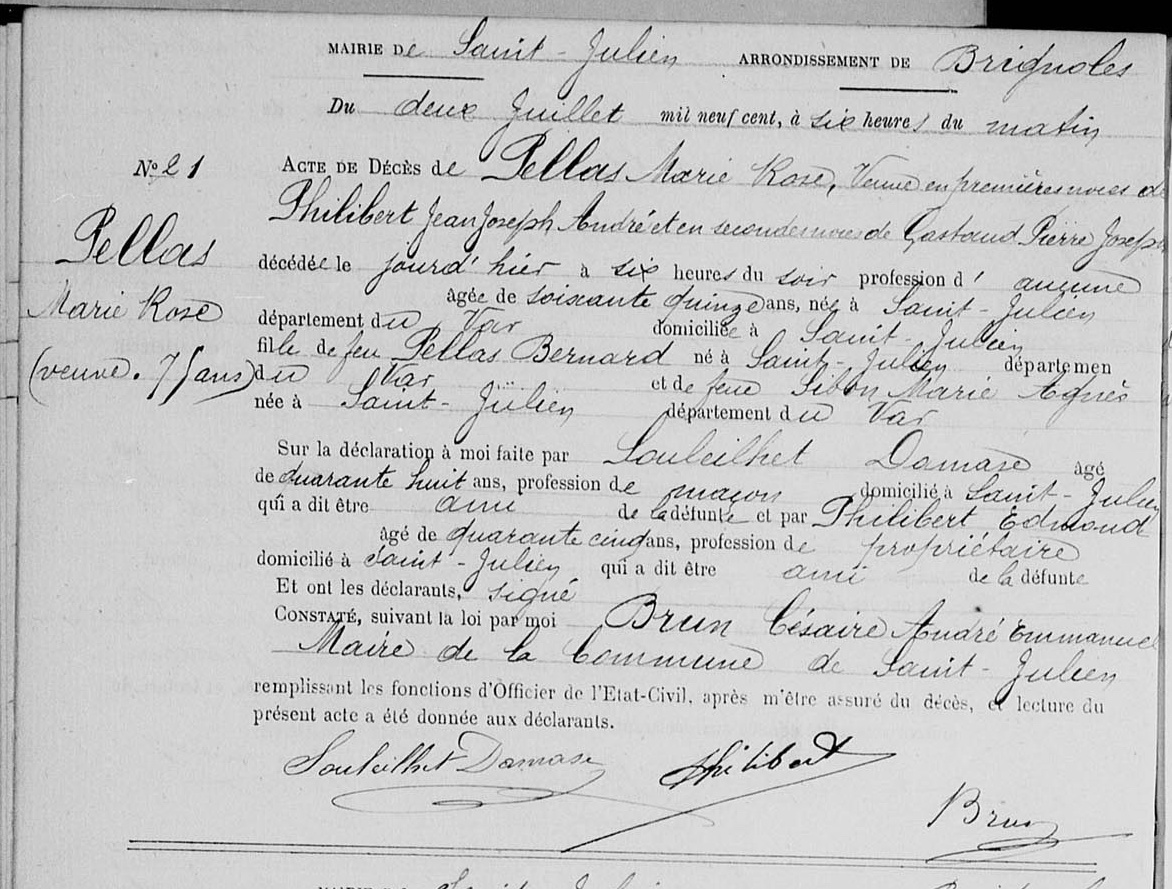 MAIRIE de Saint-Julien ARRONDISSEMENT DE Brignoles
Du deux Juillet mil neuf cent, à six heures du matin
N° 21
ACTE DE DÉCÈS de Pellas Marie Rose, Veuve en premières noces de
Philibert Jean Joseph André et en secondes noces de Gastaud Pierre Joseph
Pellas
Marie Rose
(veuve. 75 ans)
décédée le jourd'hier à six heures du soir profession d' aucune
âgée de soixante quinze ans, née à Saint-Julien
département du Var domiciliée à Saint-Julien
fille de feu Pellas Bernard né à Saint-Julien départemen
du Var et de feue Sibon Marie Agnès
née à Saint-Julien département du Var
Sur la déclaration à moi faite par Souleilhet Damase âgé
de quarante huit ans, profession de maçon domicilié à Saint-Julien
qui a dit être ami de la défunte et par Philibert Edmond
âgé de quarante cinq ans, profession de propriétaire
domicilié à Saint-Julien qui a dit être ami de la défunte
Et ont les déclarants, signé
CONSTATÉ, suivant la loi par moi Brun Césaire André Emmanuel
Maire de la Commune de Saint-Julien
remplissant les fonctions d'Officier de l'Etat-Civil, après m'être assuré du décès, et lecture du
présent acte a été donnée aux déclarants.
Souleilhet Damase Philibert
Brun